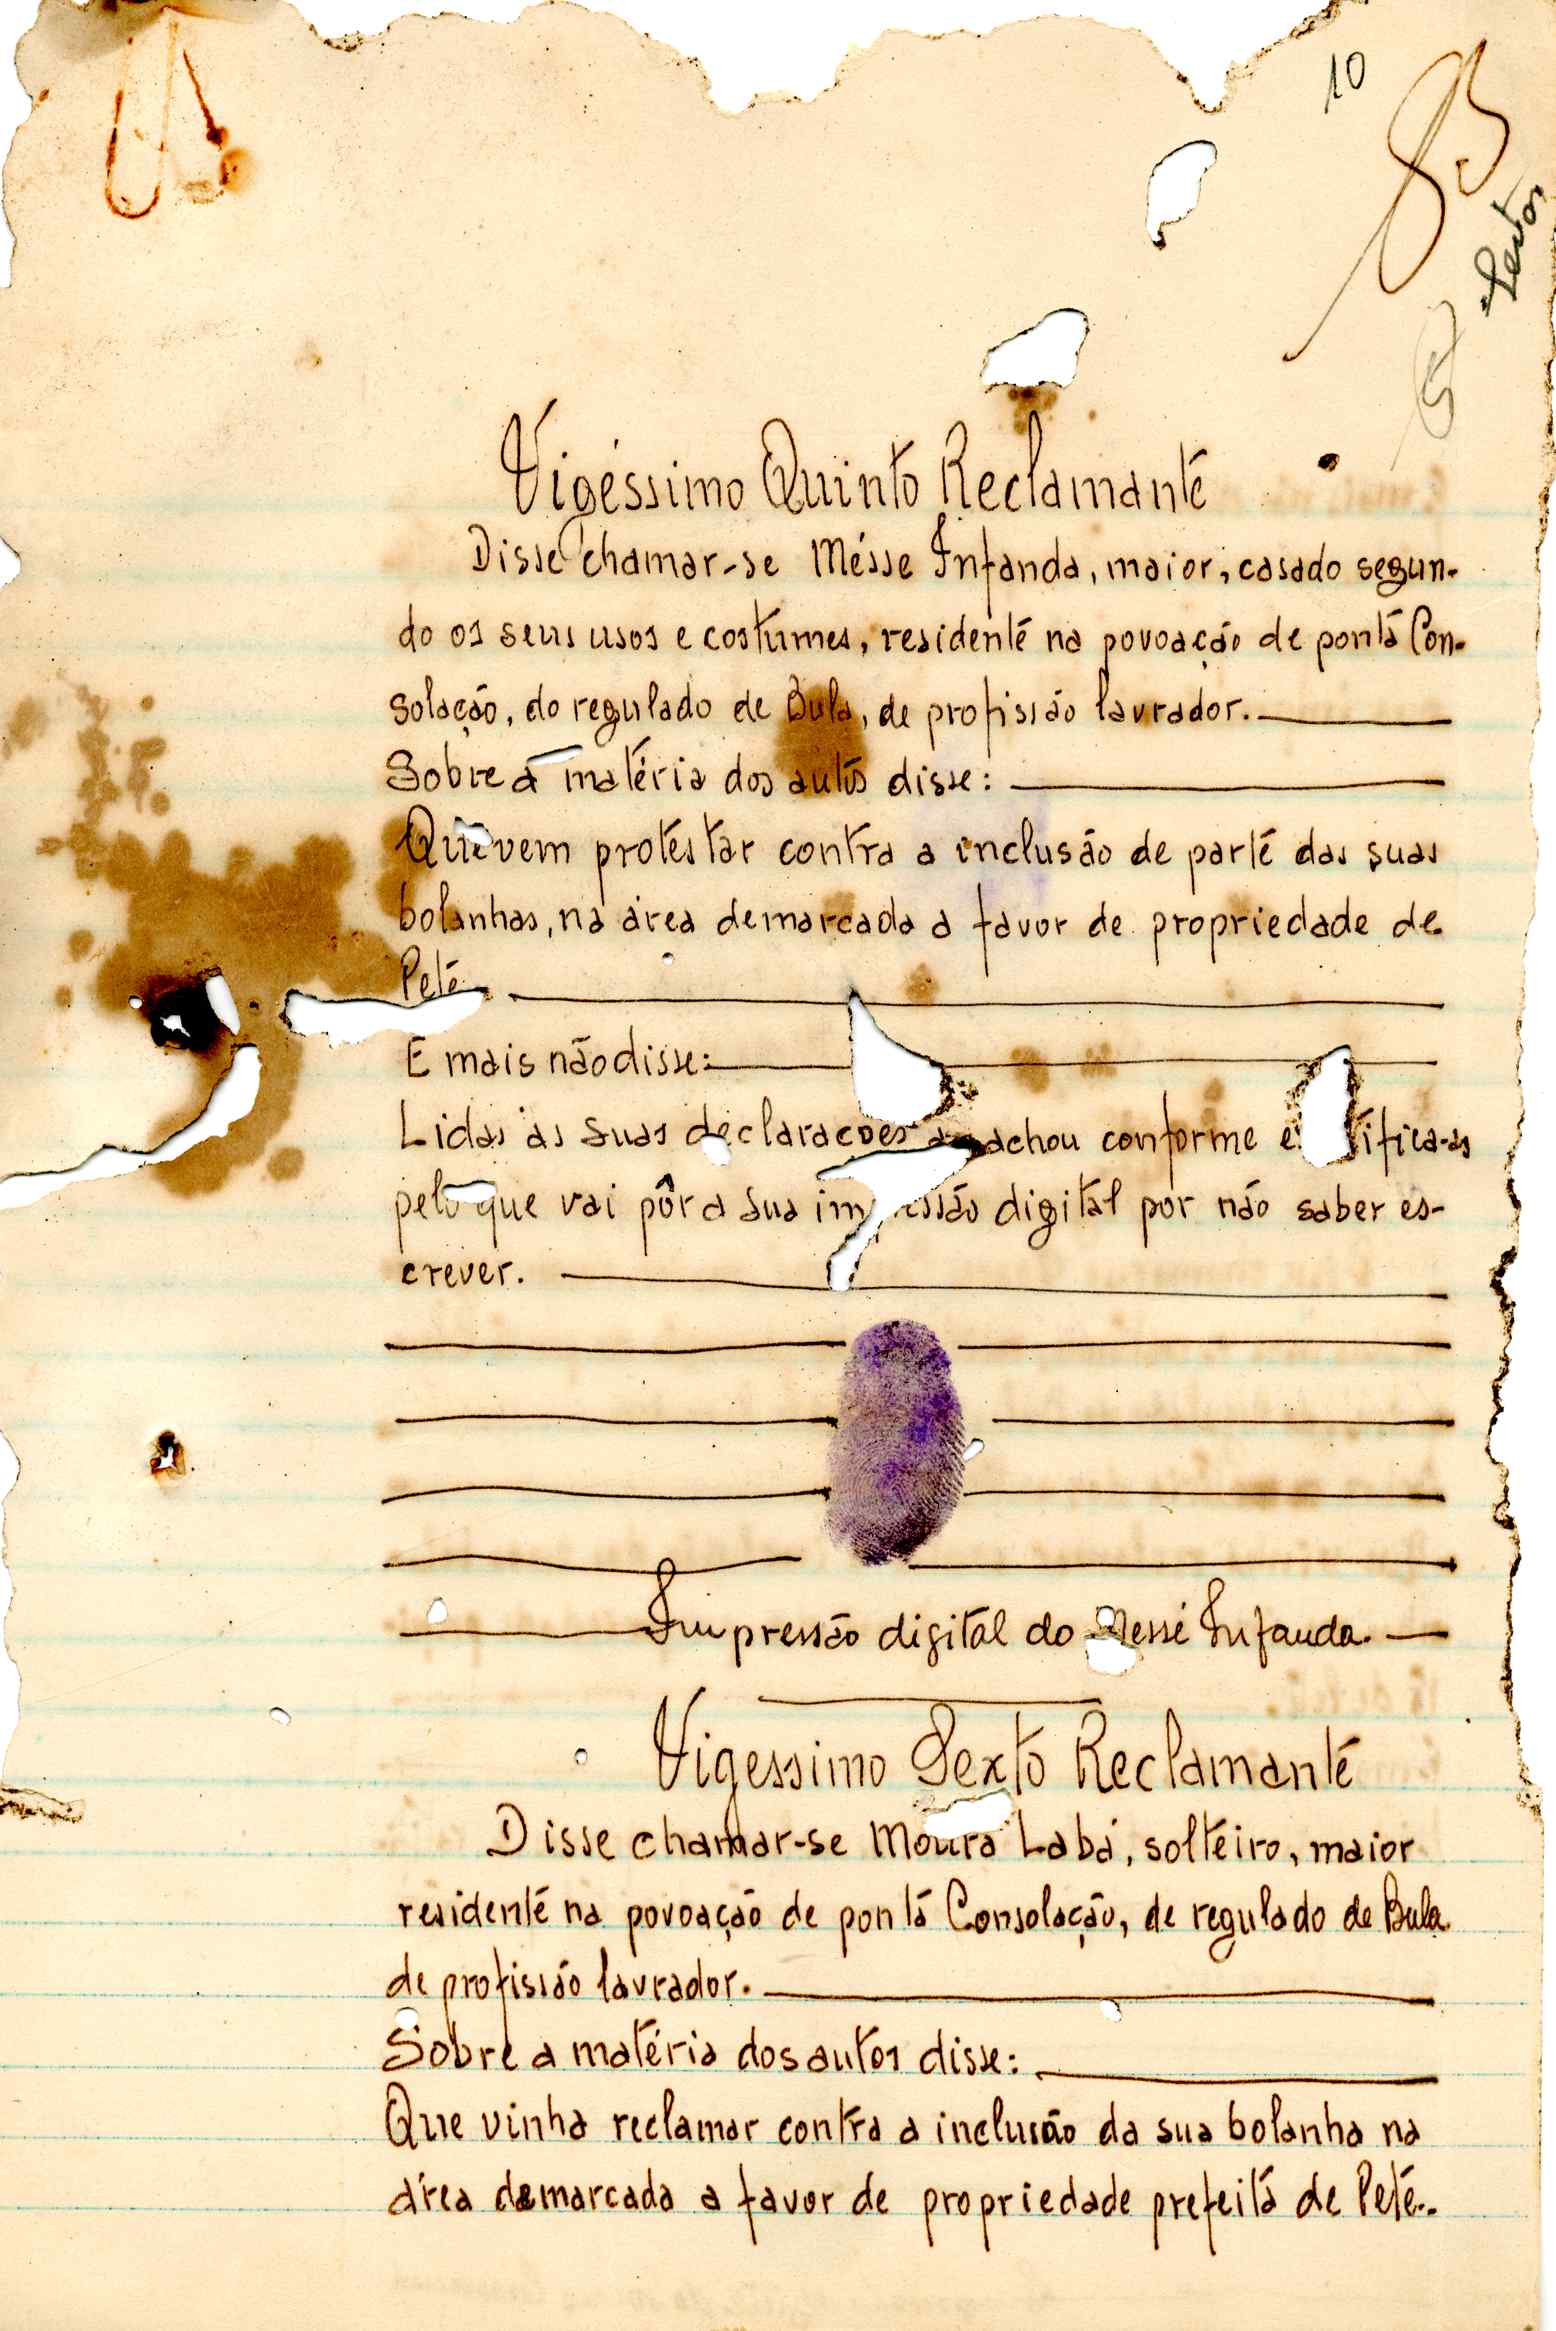 10
Vigéssimo Quinto Reclamante
Disse chamar-se Mésse Infanda, maior, casado segun-
do os seus usos e costumes, residente na povoação de ponta Con-
solação, do regulado de Bula, de profissão lavrador.
Sobre a matéria dos autos disse:
Que vem protestar contra a inclusão de parte das suas
bolanhas, na área demarcada a favor de propriedade de
Peté
E mais não disse:
Lidas as suas declaracoes as achou conforme e tifica-as
pelo que vai pôr a sua impressão digital por não saber es-
crever.
Impressão digital do Messé Infanda.
Vigessimo Sexto Reclamante
Disse chamar-se Moura Labá, solteiro, maior
residente na povoação de ponta Consolação, de regulado de Bula
de profissão lavrador.
Sobre a matéria dos autos disse:
Que vinha reclamar contra a inclusão da sua bolanha na
área demarcada a favor de propriedade prefeita de Peté.